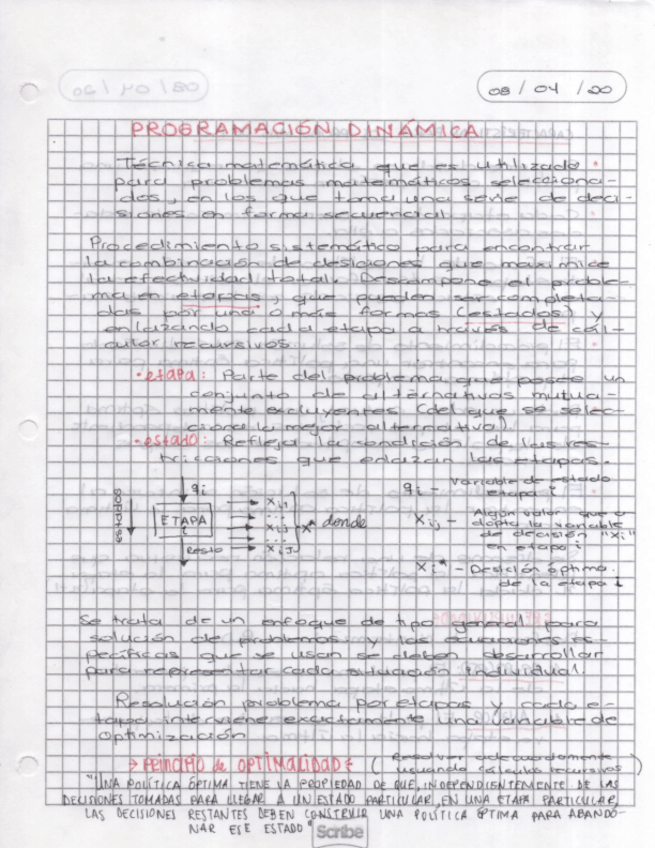 08 / 04 / 20
PROGRAMACIÓN DINÁMICA
Técnica matemática que es utilizado
para problemas matemáticos selecciona-
dos, en los que toma una serie de deci-
siones en forma secuencial
Procedimiento sistemático para encontrar
la combinación de desiciones que maximice
la efectividad total. Descompone el proble-
ma en etapas, que pueden ser completa-
das por una o más formas (estados) y
enlazando cada etapa a través de cál-
culor recursivos
• etapa: Parte del problema que posee un
conjunto de alternativas mutua-
mente excluyentes (del que se selec-
ciona la mejor alternativa).
• estado: Refleja la condición de las res-
tricciones que enlazan las etapas.
estados
qi
ETAPA
i
Resto
Xi1
Xij
XiJ
X* donde
qi - Variable de estado
etapa i
Xij - Algún valor que a
dopta la variable
de decisión "Xi"
en etapa i
Xi* - Desición óptima
de la etapa i
Se trata de un enfoque de tipo general para
solución de problemas y las ecuaciones es-
pecíficas que se usan se deben desarrollar
para representar cada situación individual.
Resolución problema por etapas y cada e-
tapa interviene exactamente una variable de
optimización
PRINCIPIO de OPTIMALIDAD: (Resolver adecuadamente
usando cálculos recursivos)
"UNA POLÍTICA ÓPTIMA TIENE LA PROPIEDAD DE QUE, INDEPENDIENTEMENTE DE LAS
DECISIONES TOMADAS PARA LLEGAR A UN ESTADO PARTICULAR, EN UNA ETAPA PARTICULAR,
LAS DECISIONES RESTANTES DEBEN CONSTRUIR UNA POLÍTICA ÓPTIMA PARA ABANDO-
NAR ESE ESTADO"
Scribe